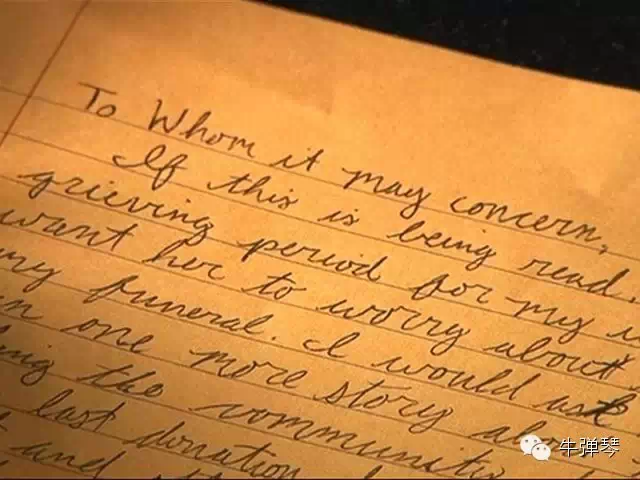 To Whom it may concern,
If this is being read.
grieving period for my
want her to worry about
my funeral. I would ask
one more story
the community
last donation
and
牛弹琴